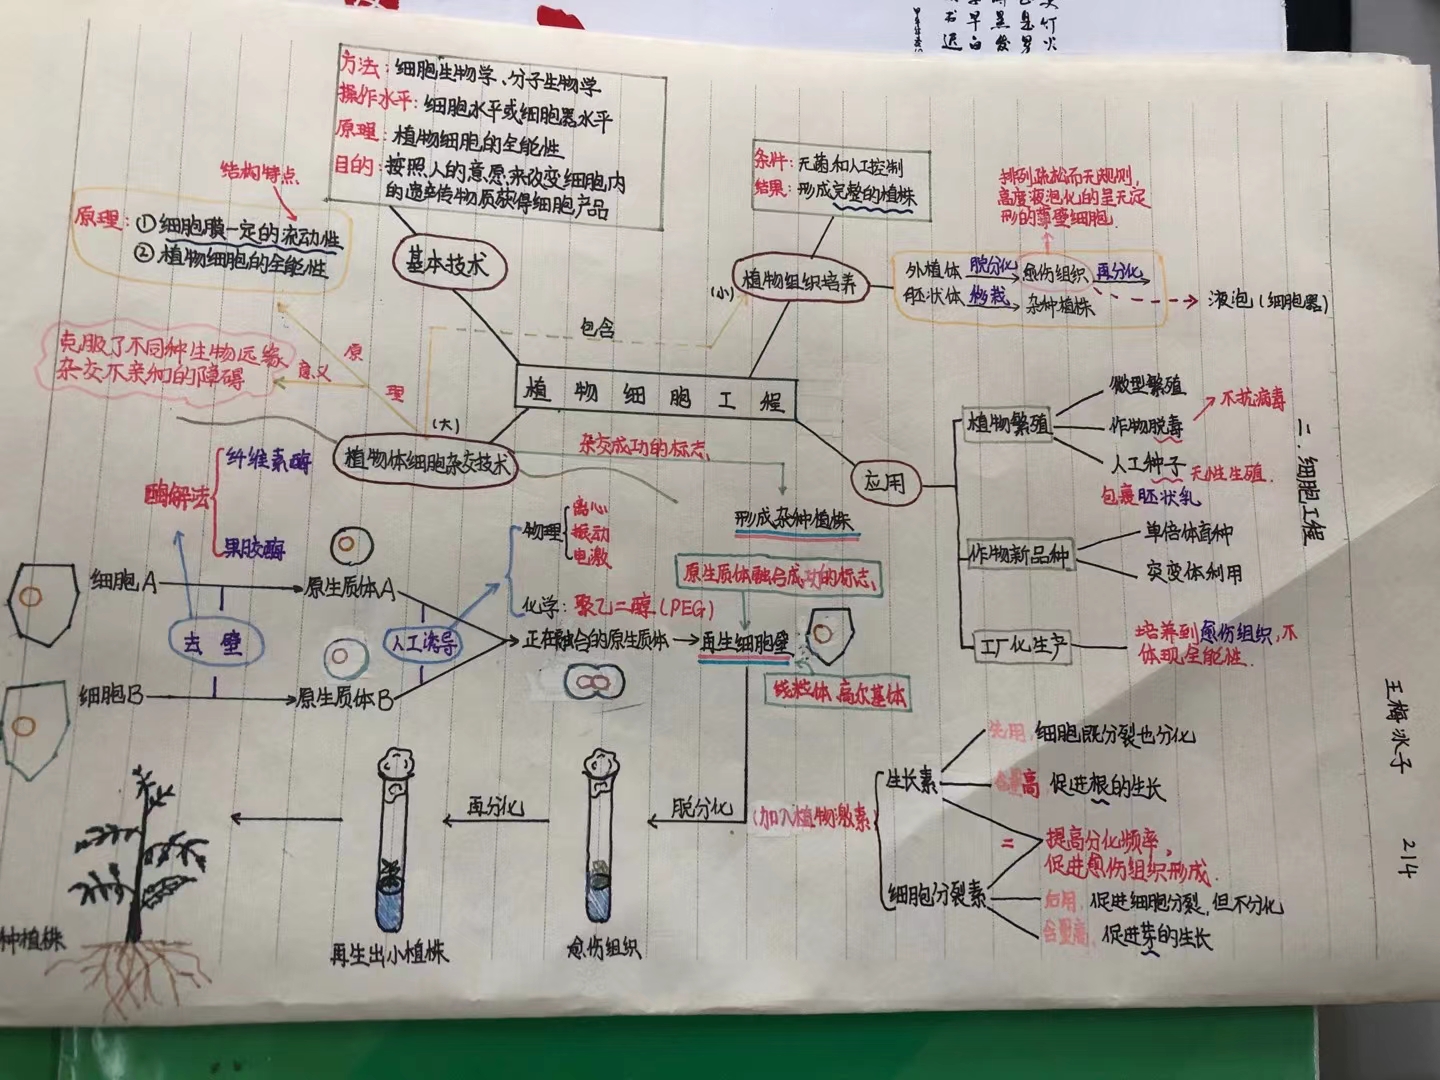 方法：细胞生物学、分子生物学
操作水平：细胞水平或细胞器水平
原理：植物细胞的全能性
目的：按照人的意愿来改变细胞内
的遗传物质获得细胞产品
基本技术
结构特点
原理：①细胞膜一定的流动性
②植物细胞的全能性
条件：无菌和人工控制
结果：形成完整的植株
(小)
植物组织培养
排列疏松而无规则，
高度液泡化的呈无定
形的薄壁细胞。
外植体 脱分化 愈伤组织 再分化
胚状体 移栽 杂种植株
液泡(细胞器)
包含
克服了不同种生物远缘
杂交不亲和的障碍
意义
原
理
植物细胞工程
(大)
植物体细胞杂交技术
杂交成功的标志
形成杂种植株
应用
植物繁殖
微型繁殖
作物脱毒
不抗病毒
人工种子 无性生殖.
包裹胚状乳
作物新品种
单倍体育种
突变体利用
工厂化生产
培养到愈伤组织，不
体现全能性.
二.细胞工程
酶解法
纤维素酶
果胶酶
细胞A
原生质体A
去壁
细胞B
原生质体B
人工诱导
物理
离心
振动
电激
化学：聚乙二醇(PEG)
正在融合的原生质体
原生质体融合成功的标志
再生细胞壁
线粒体 高尔基体
脱分化
再分化
愈伤组织
再生出小植株
种植株
(加入植物激素
生长素
先用，细胞既分裂也分化
含量高 促进根的生长
=
提高分化频率，
促进愈伤组织形成.
细胞分裂素
后用，促进细胞分裂，但不分化
含量高，促进芽的生长
王梅冰子 214